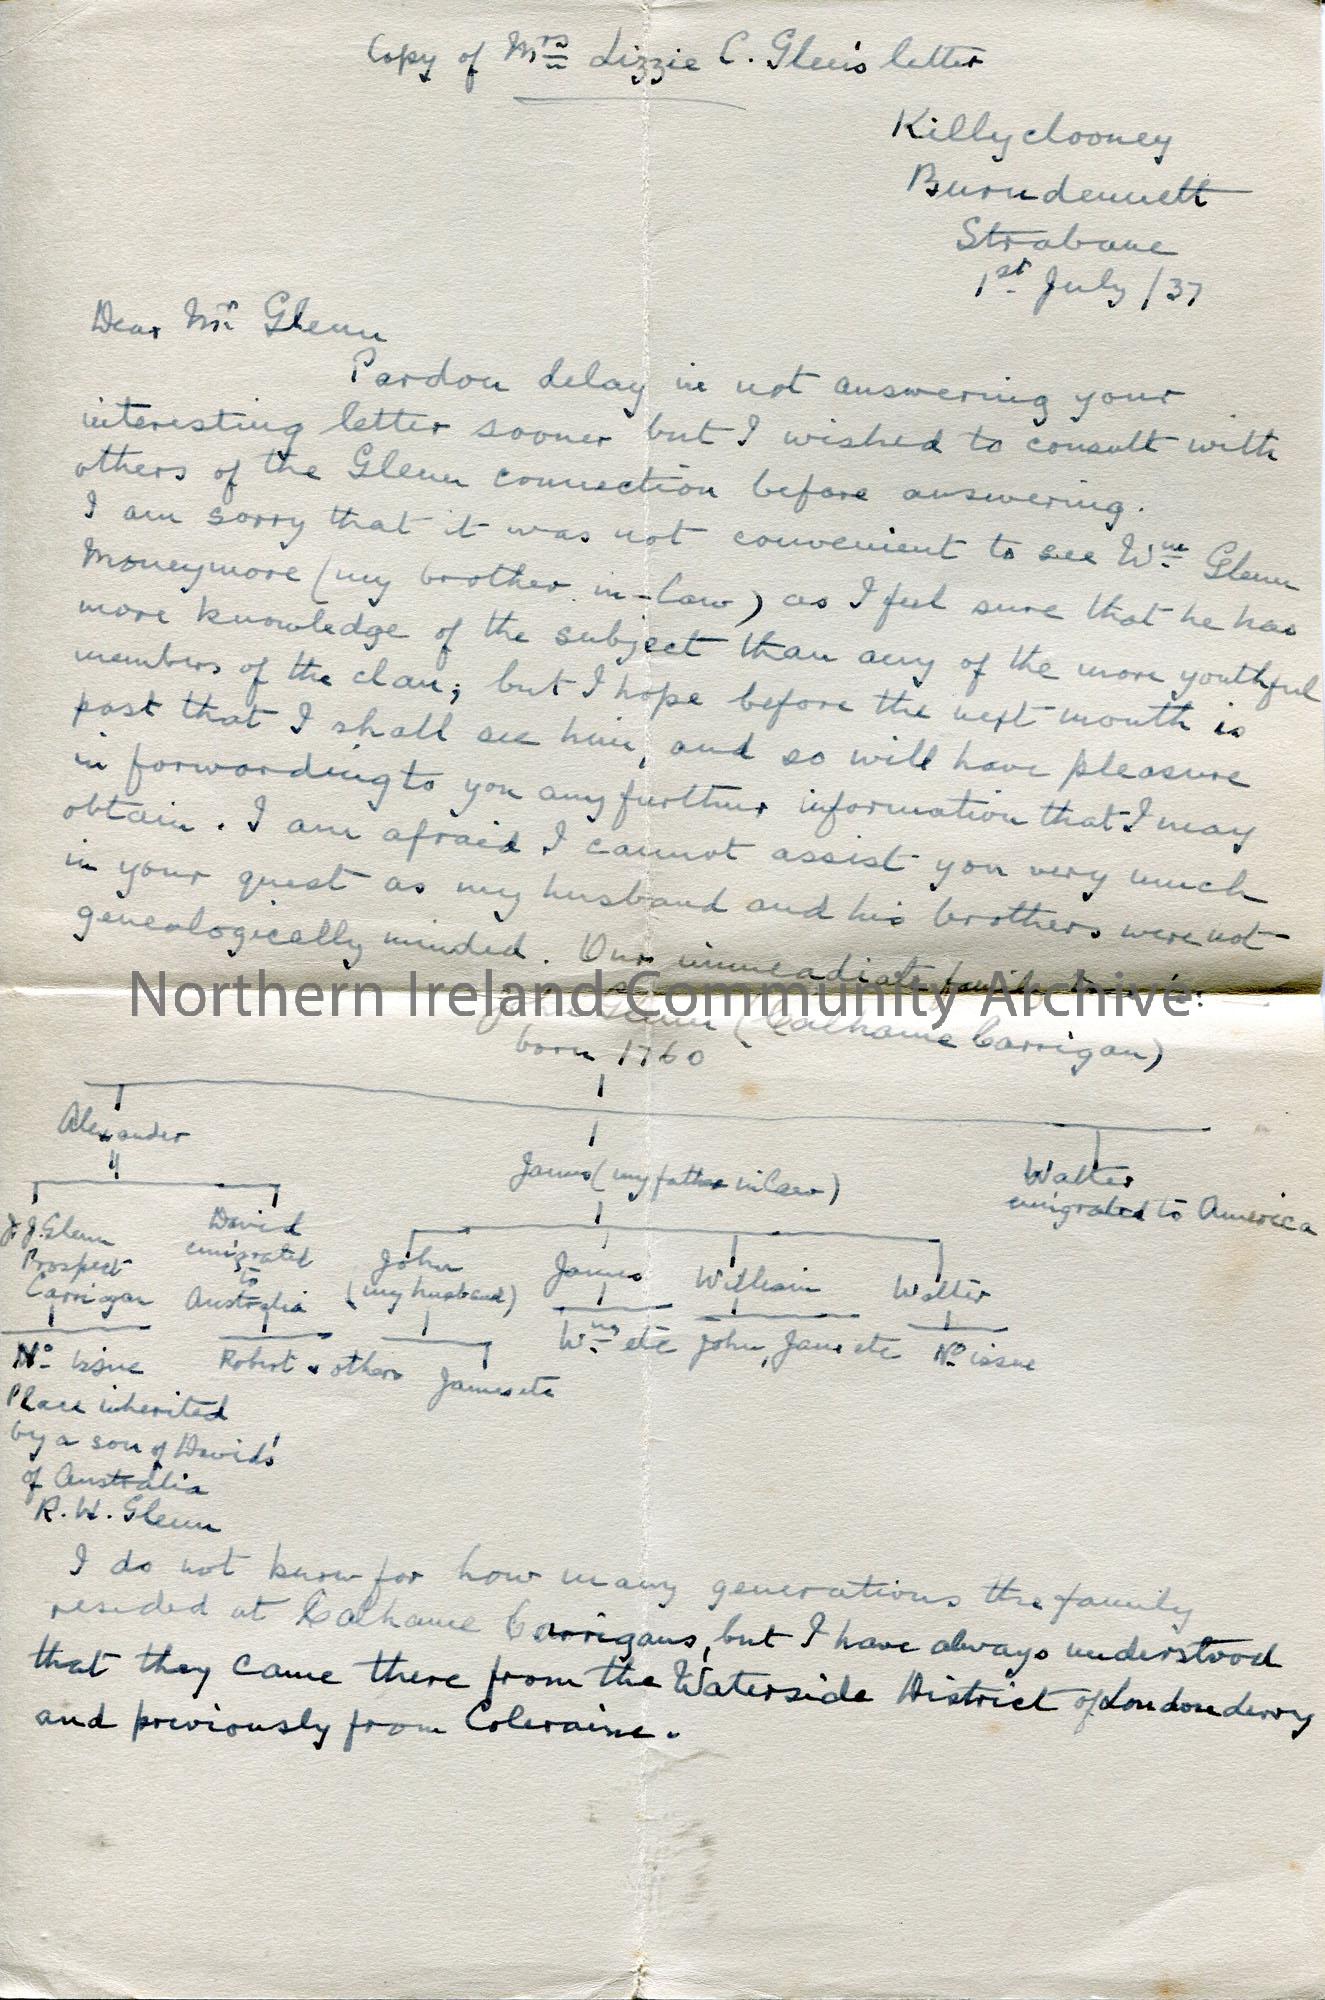 Copy of Mrs Lizzie C. Glenn's letter
Killyclooney
Burndennett
Strabane
1st July /37
Dear Mr Glenn
Pardon delay in not answering your
interesting letter sooner but I wished to consult with
others of the Glenn connection before answering.
I am sorry that it was not convenient to see Wm Glenn
Moneymore (my brother in-law) as I feel sure that he has
more knowledge of the subject than any of the more youthful
members of the clan; but I hope before the next month is
past that I shall see him, and so will have pleasure
in forwarding to you any further information that I may
obtain. I am afraid I cannot assist you very much
in your quest as my husband and his brothers were not
genealogically minded. Our immeadiate family
Northern Ireland Community Archive
Glenn (Calhame Carrigan)
born 1760
Alexander
James (my father in law)
Walter
emigrated to America
J. J. Glenn
Prospect
Carrigan
David
emigrated
to
Australia
John
(my husband)
James
William
Walter
No issue
Robert & others
James etc
Wm etc
John, James etc
No issue
Place inherited
by a son of David's
of Australia
R. W. Glenn
I do not know for how many generations the family
resided at Calhame Carrigans, but I have always understood
that they came there from the Waterside District of Londonderry
and previously from Coleraine.